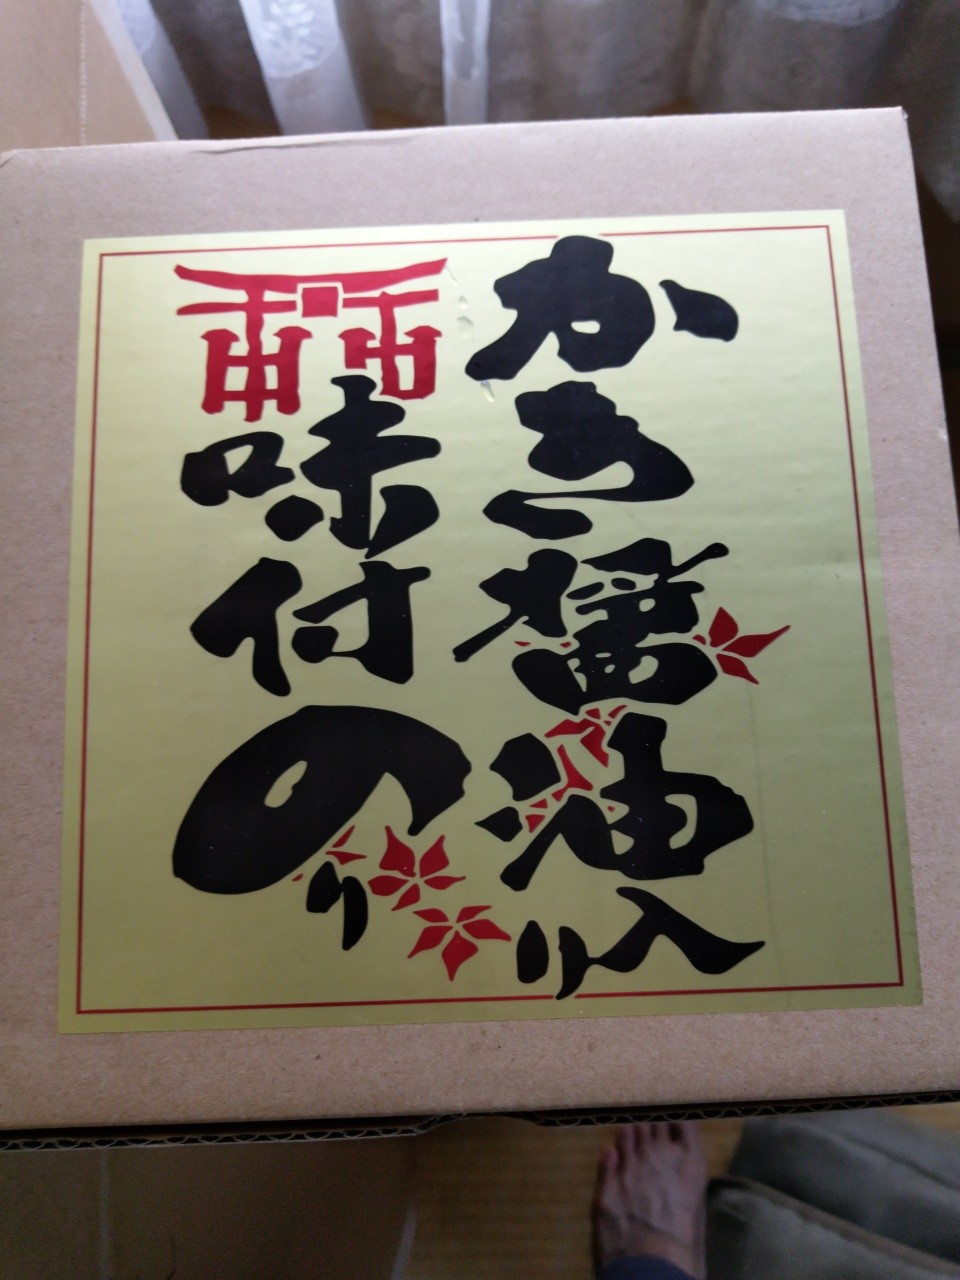 かき醤油入り
味付のり